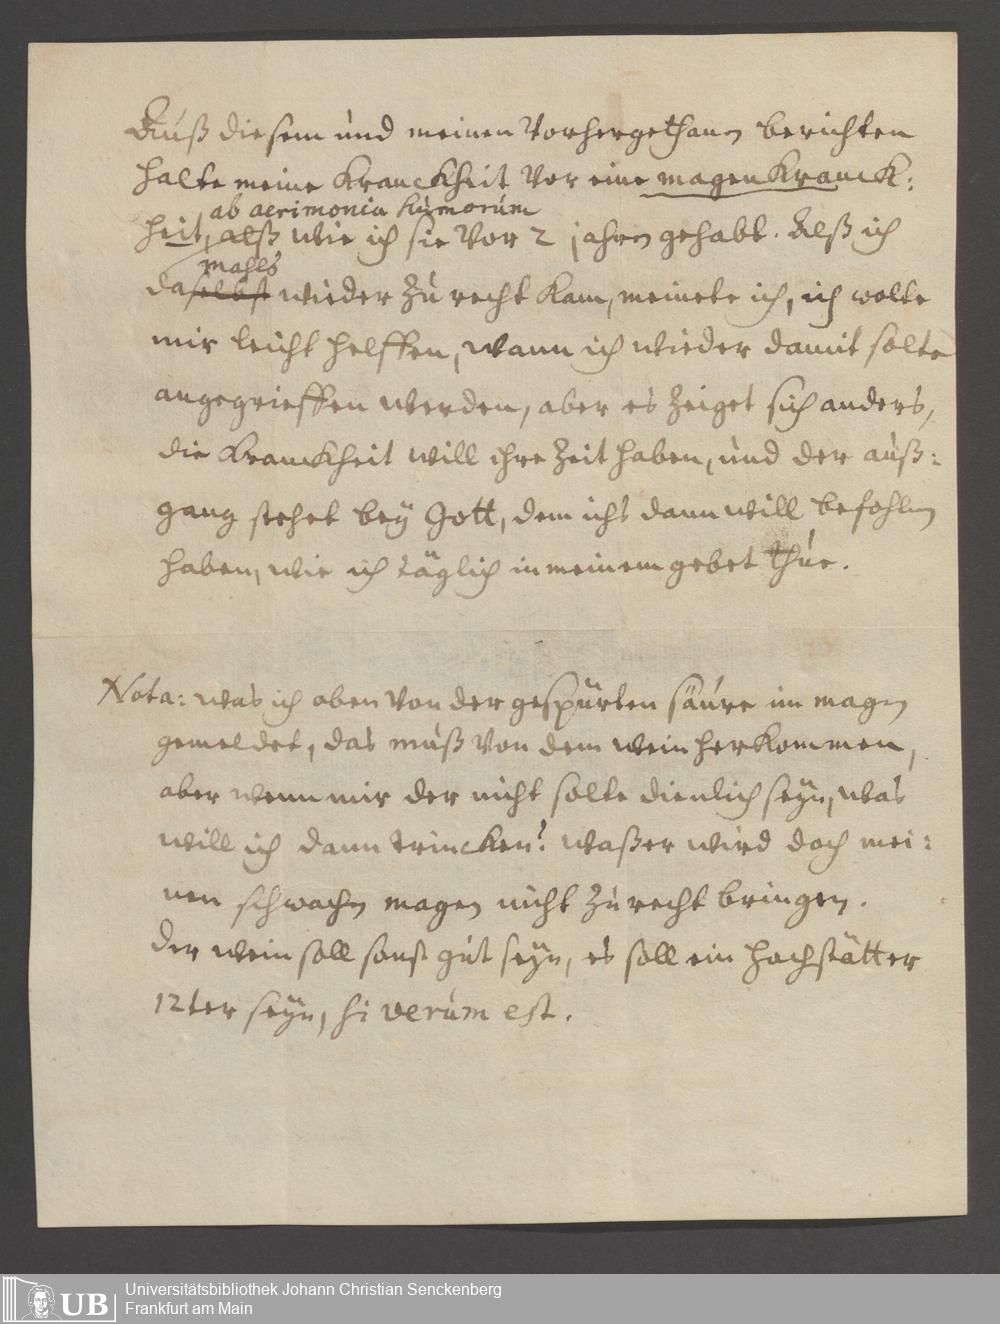 Auß diesem und meinen Vorhergethanen berichten
halte meine Kranckheit Vor eine magen Kranck:
ab acrimonia humorum
heit, alß wie ich sie Vor 2 jahren gehabt. Alß ich
mahls
daselbst wieder zu recht kam, meinete ich, ich wolte
mir leicht helffen, wann ich wieder damit solte
angegrieffen werden, aber es zeiget sich anders,
die Kranckheit will ihre Zeit haben, und der auß:
gang stehet bey Gott, dem ichs dann will befohlen
haben, wie ich täglich in meinem gebet thue.
Nota: was ich oben Von der gespürten säure im magen
gemeldet, das muß Von dem wein herkommen,
aber wenn mir der nicht solte dienlich seyn, was
will ich dann trincken? waßer wird doch mei:
nen schwachen magen nicht zu recht bringen.
der wein soll sonst gut seyn, es soll ein Hochstätter
12ter seyn, si verum est.
UB
Universitätsbibliothek Johann Christian Senckenberg
Frankfurt am Main